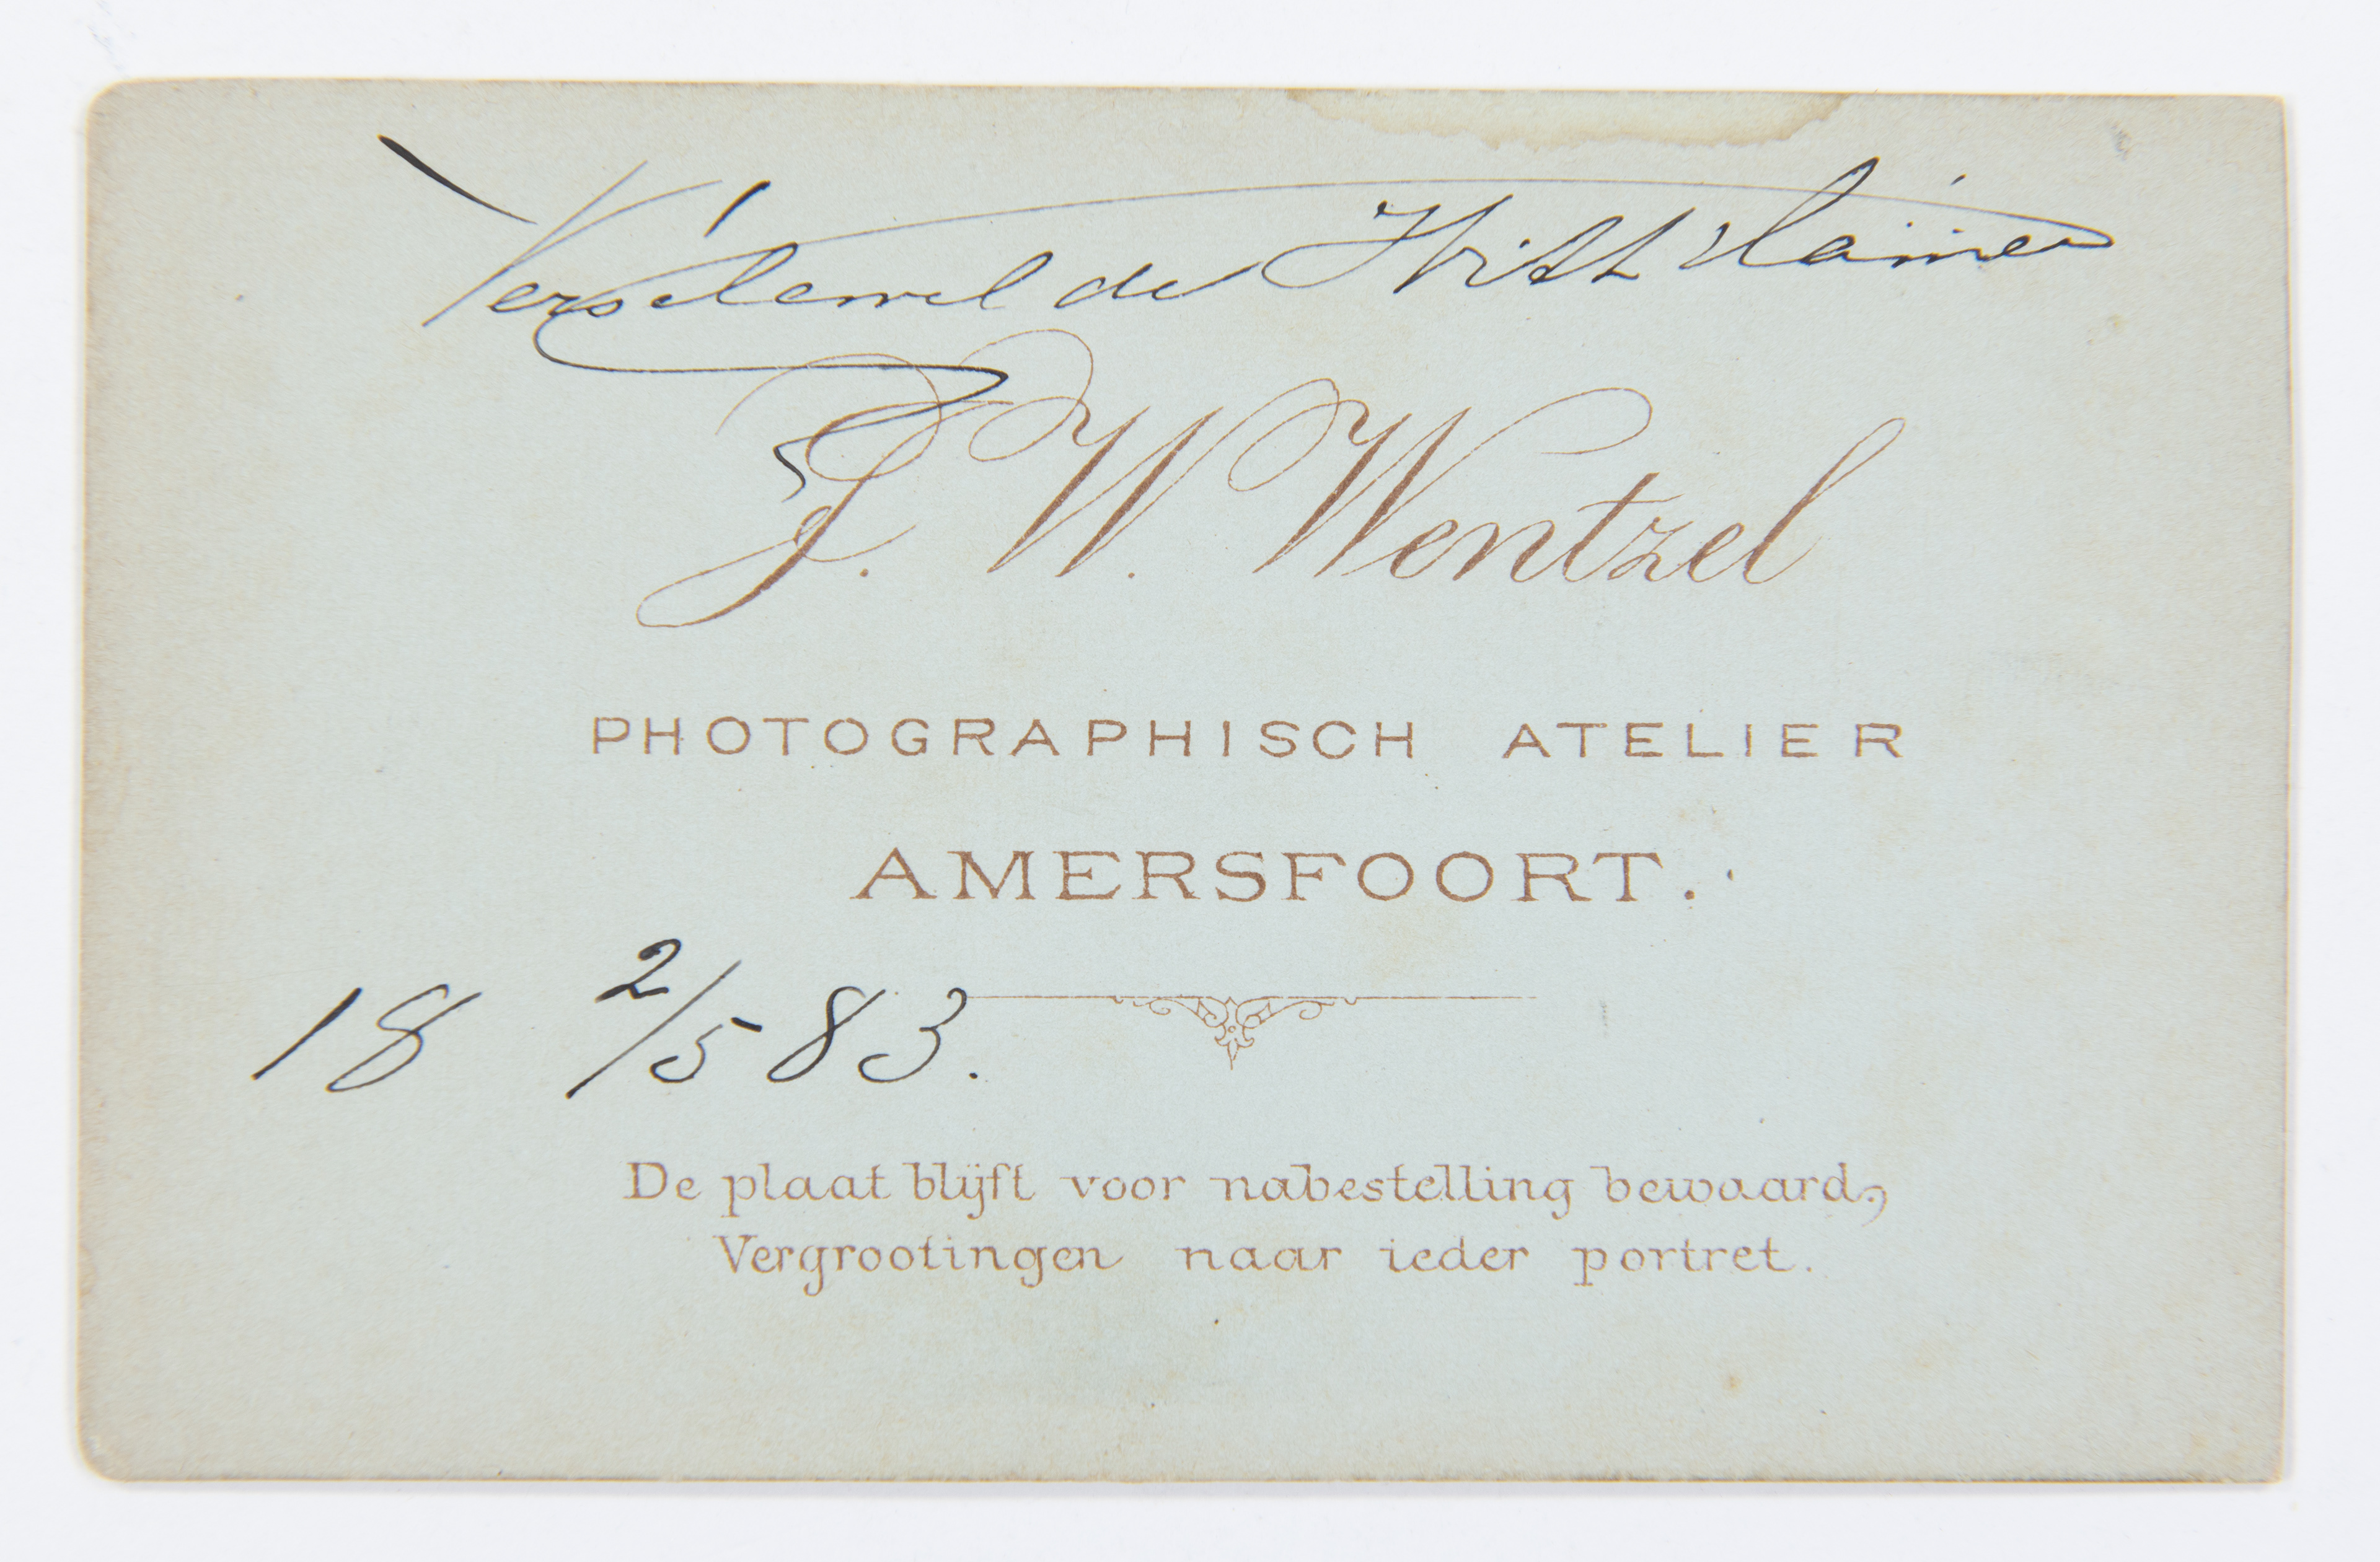 Verselewel de Witt Hamer
J. W. Wentzel
PHOTOGRAPHISCH ATELIER
AMERSFOORT.
18 2/5 83.
De plaat blijft voor nabestelling bewaard,
Vergrootingen naar ieder portret.